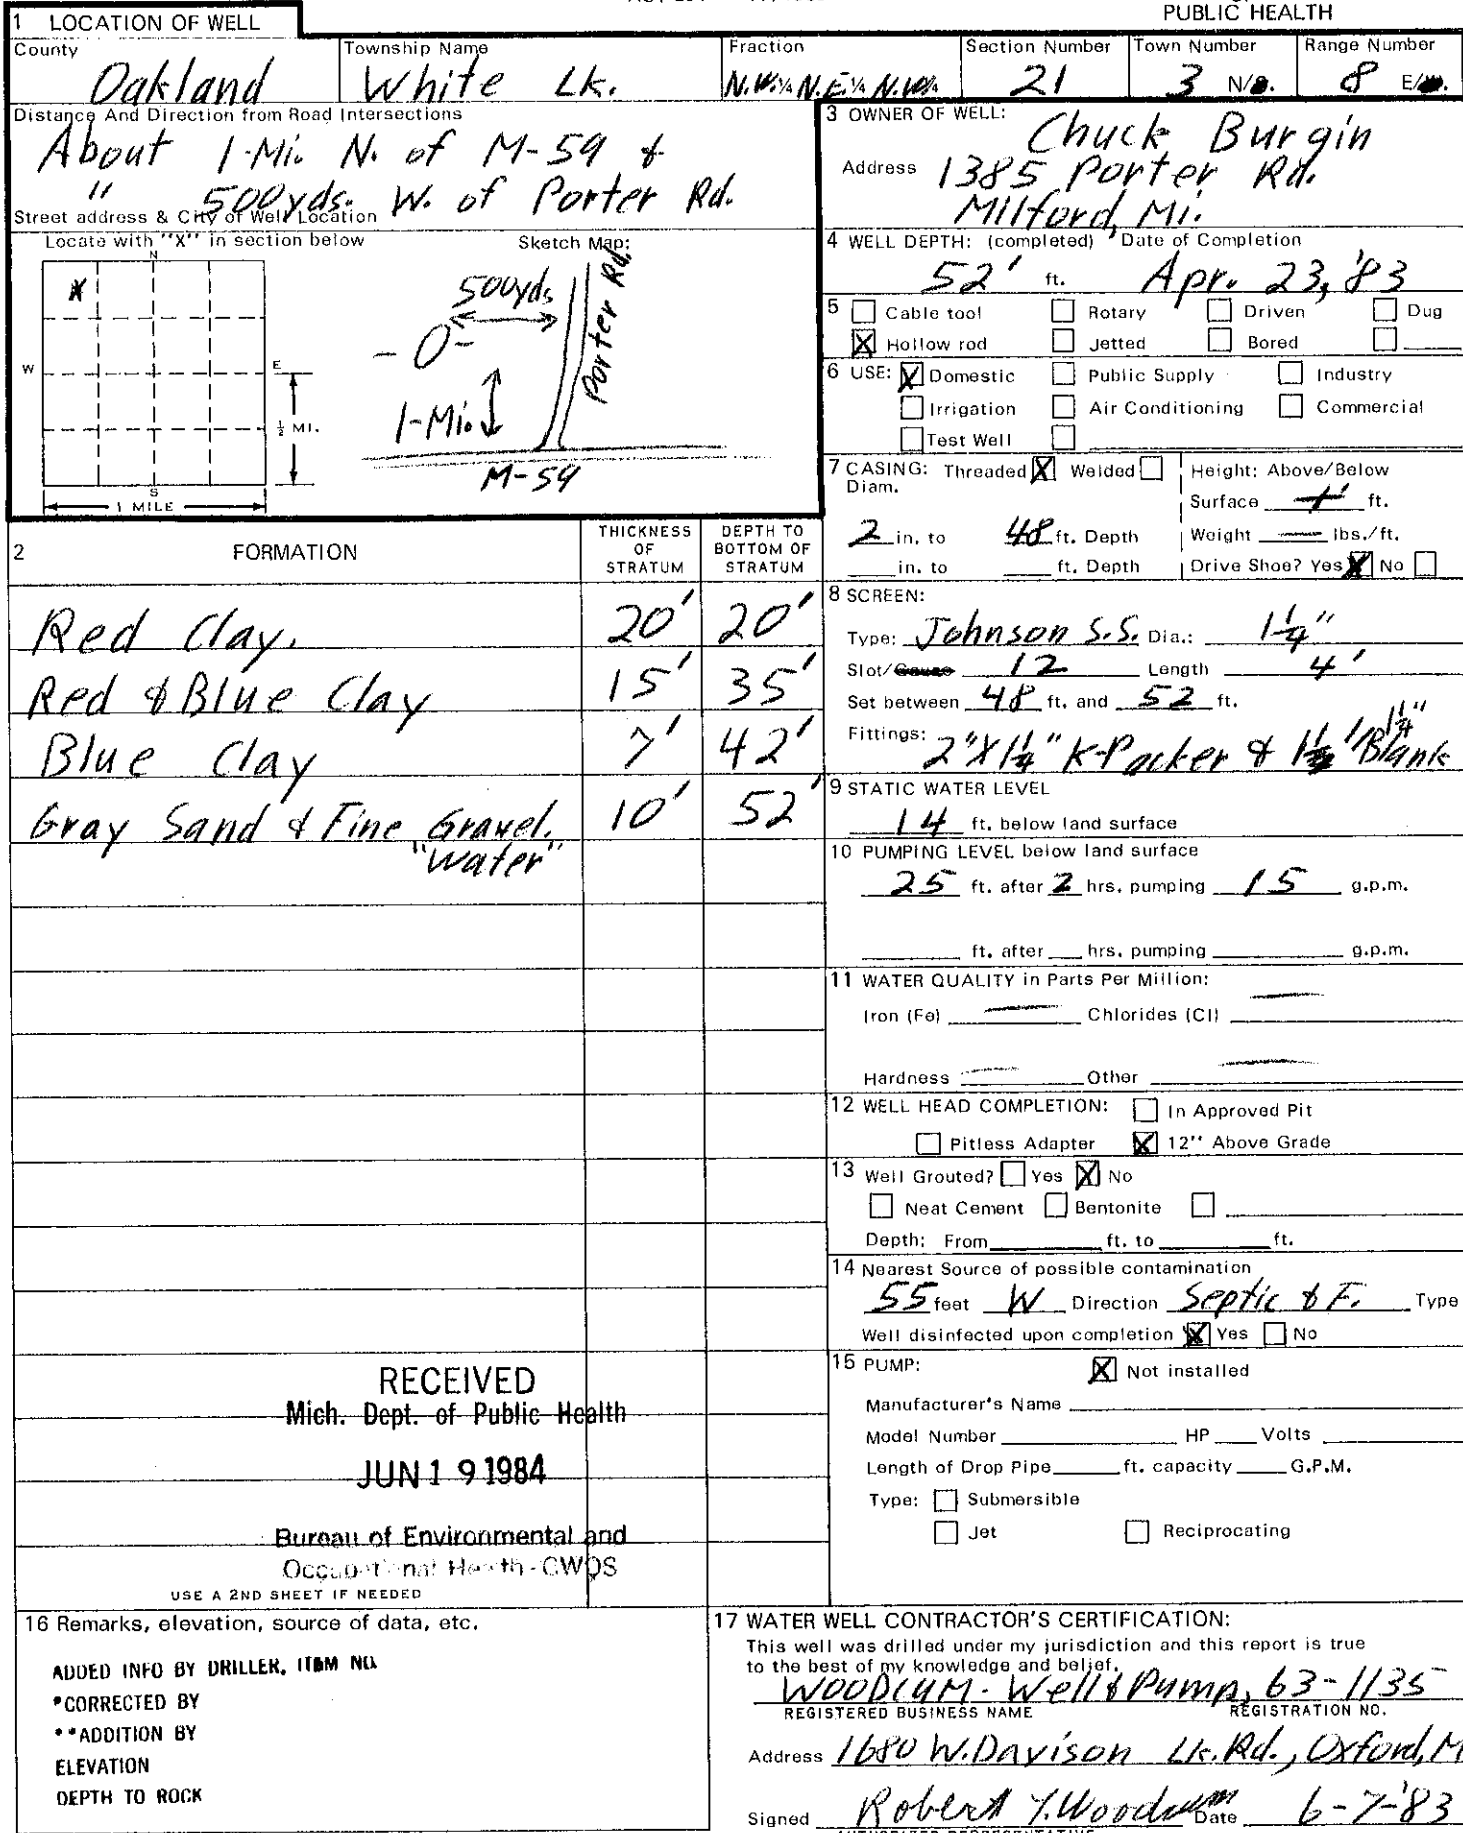 PUBLIC HEALTH
1 LOCATION OF WELL
County Township Name Fraction Section Number Town Number Range Number
Oakland White Lk. N.W.¼ N.E.¼ N.W.¼ 21 3 N/S. 8 E/W.
Distance And Direction from Road Intersections
About 1-Mi. N. of M-59 &
" 500yds. W. of Porter Rd.
Street address & City of Well Location
Locate with "X" in section below Sketch Map:
N
X
W E
½ MI.
S
1 MILE
500yds
Porter Rd.
- O -
1-Mi.
M-59
3 OWNER OF WELL:
Chuck Burgin
Address 1385 Porter Rd.
Milford, Mi.
4 WELL DEPTH: (completed) Date of Completion
52' ft. Apr. 23, '83
5 Cable tool Rotary Driven Dug
X Hollow rod Jetted Bored
6 USE: X Domestic Public Supply Industry
Irrigation Air Conditioning Commercial
Test Well
7 CASING: Threaded X Welded Height: Above/Below
Diam.
Surface 1' ft.
2 in. to 48 ft. Depth Weight — lbs./ft.
in. to ft. Depth Drive Shoe? Yes X No
2 FORMATION THICKNESS OF STRATUM DEPTH TO BOTTOM OF STRATUM
Red Clay. 20' 20'
Red & Blue Clay 15' 35'
Blue Clay 7' 42'
Gray Sand & Fine Gravel. 10' 52'
"Water"
8 SCREEN:
Type: Johnson S.S. Dia.: 1¼"
Slot/Gauze 12 Length 4'
Set between 48 ft. and 52 ft.
Fittings: 2"X1¼" K-Packer & 1' 1¼" Blank
9 STATIC WATER LEVEL
14 ft. below land surface
10 PUMPING LEVEL below land surface
25 ft. after 2 hrs. pumping 15 g.p.m.
ft. after hrs. pumping g.p.m.
11 WATER QUALITY in Parts Per Million:
Iron (Fe) — Chlorides (Cl) —
Hardness — Other —
12 WELL HEAD COMPLETION: In Approved Pit
Pitless Adapter X 12" Above Grade
13 Well Grouted? Yes X No
Neat Cement Bentonite
Depth: From ft. to ft.
14 Nearest Source of possible contamination
55 feet W Direction Septic & F. Type
Well disinfected upon completion X Yes No
15 PUMP: X Not installed
Manufacturer's Name
Model Number HP Volts
Length of Drop Pipe ft. capacity G.P.M.
Type: Submersible
Jet Reciprocating
RECEIVED
Mich. Dept. of Public Health
JUN 19 1984
Bureau of Environmental and
Occupational Health-GWQS
USE A 2ND SHEET IF NEEDED
16 Remarks, elevation, source of data, etc.
ADDED INFO BY DRILLER, ITEM NO.
*CORRECTED BY
**ADDITION BY
ELEVATION
DEPTH TO ROCK
17 WATER WELL CONTRACTOR'S CERTIFICATION:
This well was drilled under my jurisdiction and this report is true
to the best of my knowledge and belief.
WOODRUM-Well & Pump, 63-1135
REGISTERED BUSINESS NAME REGISTRATION NO.
Address 1680 W. Davison Lk. Rd., Oxford, M
Signed Robert Y. Woodrum Date 6-7-'83